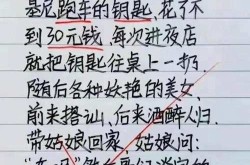 基尼跑车的钥匙,花了不
到30元钱,每次进夜店
就把钥匙往桌上一扔
随后各种妖艳的美女,
前来搭讪,后来酒醉人归.
带姑娘回家,姑娘问: